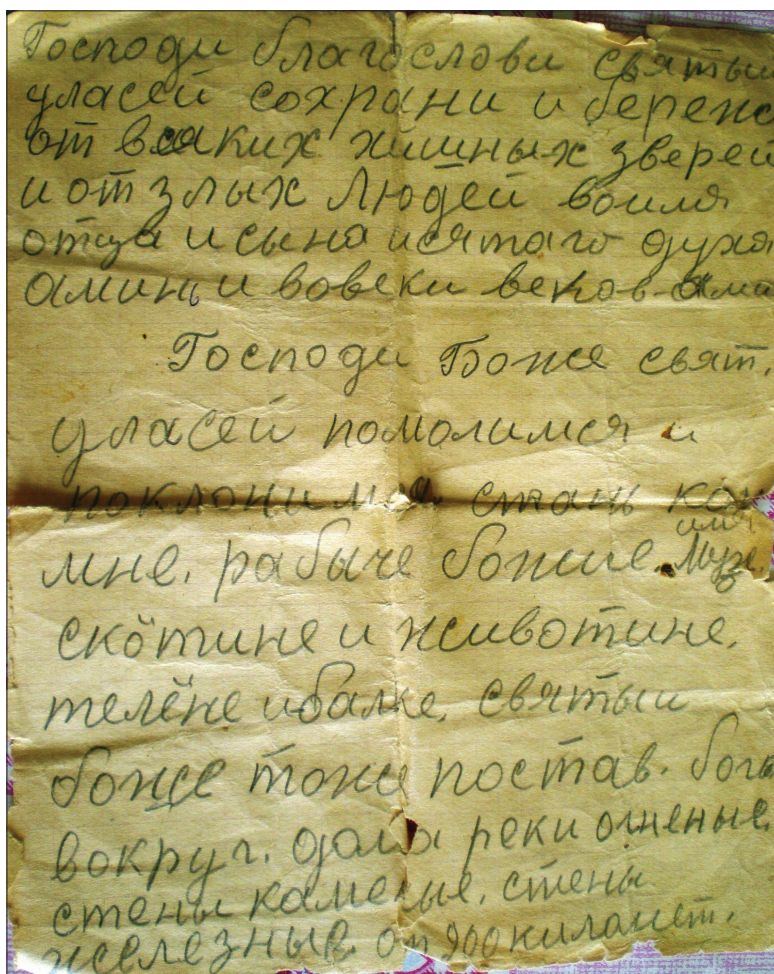 Господи благослови святыи
уласей сохрани и береж
от всяких хишных зверей
и от злых людей воимя
отца и сына исятаго духа
аминь и вовеки веков ами
Господи Боже свят.
уласей помолимся и
поклонимся. стань ко
мне. рабыче божие.
имя
скотине и животине.
телёне и балке. святыи
боже тоже постав. богъ
вокруг. дома реки огненые.
стены каменые. стены
железные. от 900 киламет.